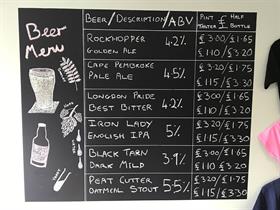 Beer Menu
BEER/DESCRIPTION/ABV PINT £ HALF
TASTER £ BOTTLE
ROCKHOPPER 4.2% £3.00/£1.65
GOLDEN ALE £1.10/£3.20
CAPE PEMBROKE 4.5% £3.20/£1.75
PALE ALE £1.15/£3.30
LONGDON PRIDE 4.2% £3.00/£1.65
BEST BITTER £1.10/£3.20
IRON LADY 5% £3.20/£1.75
ENGLISH IPA £1.15/£3.30
BLACK TARN 3.9% £3.00/£1.65
DARK MILD £1.10 £3.20
PEAT CUTTER 5.5% £3.20/£1.75
OATMEAL STOUT £1.15/£3.30